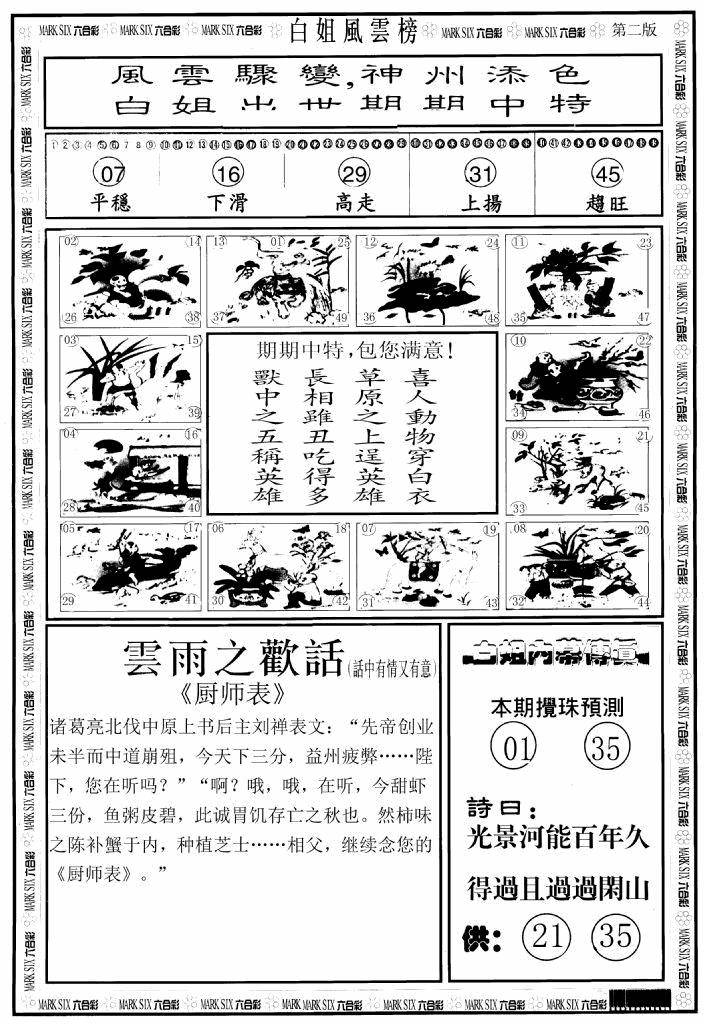 MARK SIX 六合彩 MARK SIX 六合彩 白姐風雲榜 MARK SIX 六合彩 MARK SIX 六合彩 第二版
風雲驟變,神州添色
白姐出世期期中特
07 16 29 31 45
平穩 下滑 高走 上揚 趨旺
02 14 26 38
13 01 25 37 49
12 24 36 48
11 23 35 47
03 15 27 39
10 22 34 46
04 16 28 40
09 21 33 45
05 17 29 41
06 18 30 42
07 19 31 43
08 20 32 44
期期中特,包您满意!
喜人動物穿白衣
草原之上逞英雄
長相雖丑吃得多
獸中之五稱英雄
雲雨之歡話(話中有情又有意)
《厨师表》
诸葛亮北伐中原上书后主刘禅表文：“先帝创业
未半而中道崩殂，今天下三分，益州疲弊……陛
下，您在听吗？”“啊？哦，哦，在听，今甜虾
三份，鱼粥皮碧，此诚胃饥存亡之秋也。然柿味
之陈补蟹于内，种植芝士……相父，继续念您的
《厨师表》。”
白姐内幕傳真
本期攪珠預測
01 35
詩曰：
光景河能百年久
得過且過過閑山
供： 21 35
MARK SIX 六合彩 MARK SIX 六合彩 MARK SIX 六合彩 MARK SIX 六合彩 MARK SIX 六合彩 MARK SIX 六合彩 MARK SIX 六合彩